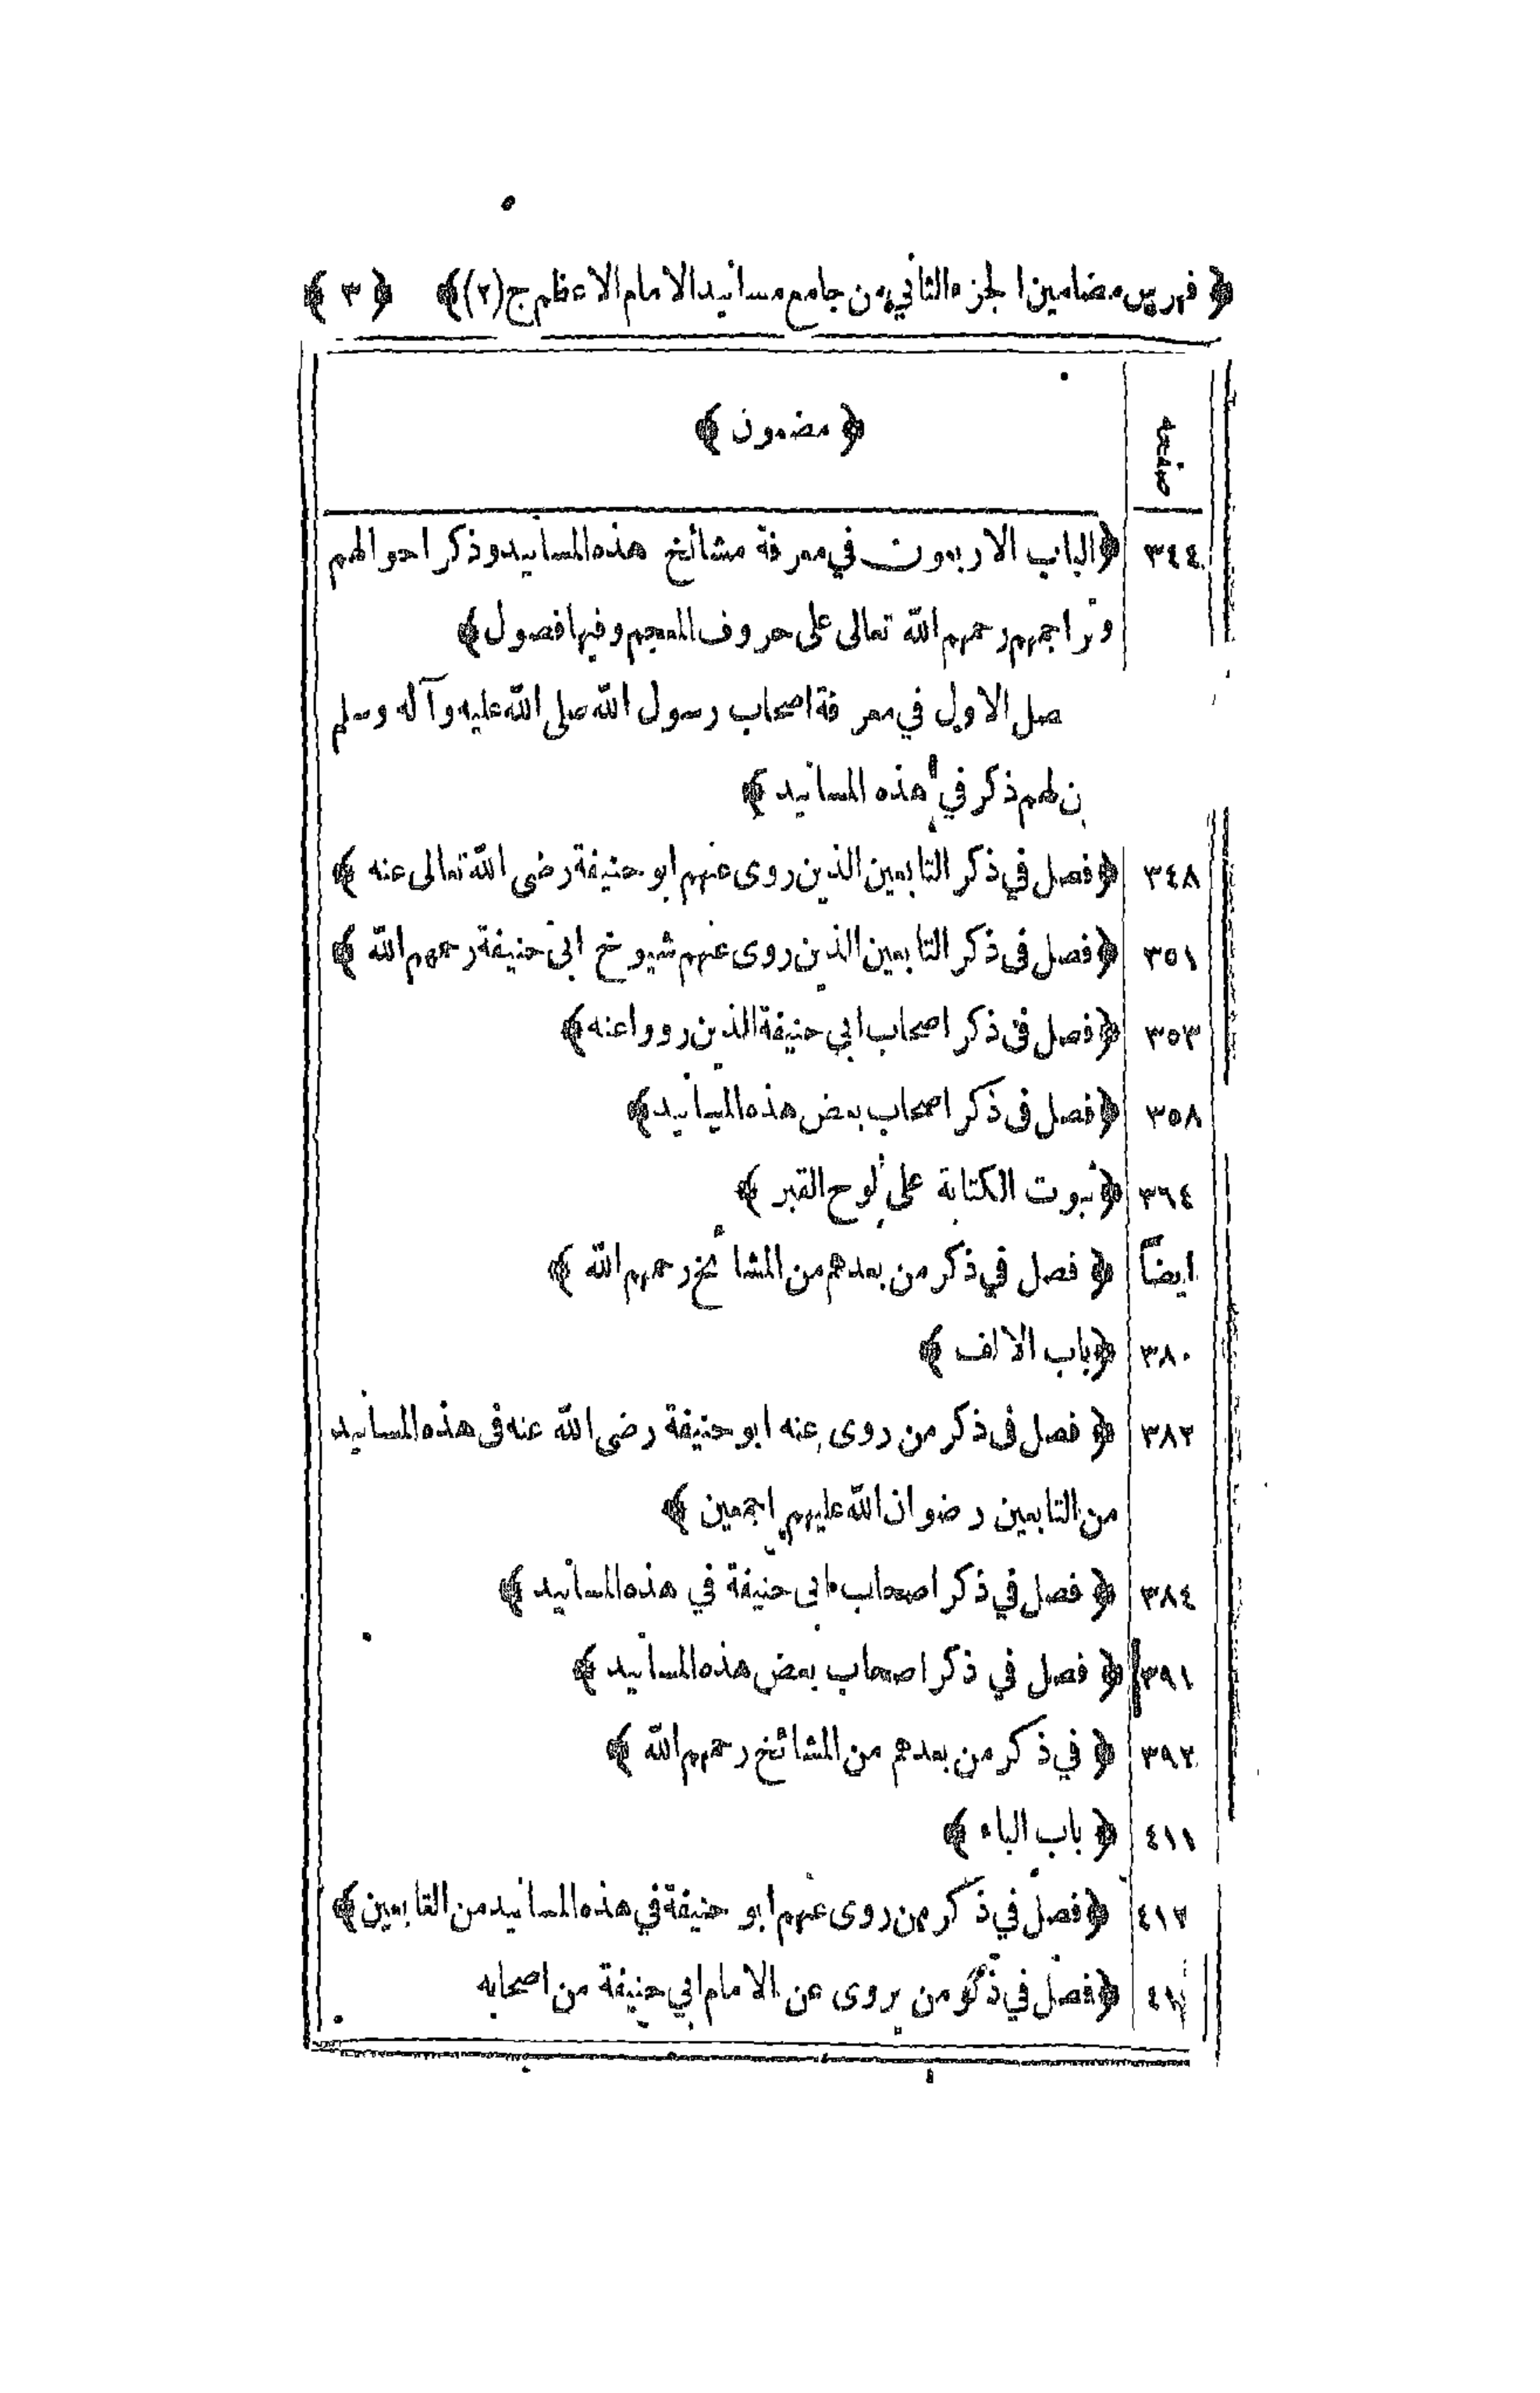 ﴿ فهرس مضامين الجزء الثاني من جامع مسانيد الامام الاعظم ج (٢) ﴾ ﴿ ٣ ﴾
صفحه ﴿ مضمون ﴾
٣٤٤ ﴿ الباب الاربعون في معرفة مشائخ هذه المسانيد وذكر احوالهم
وتراجمهم رحمهم الله تعالى على حروف المعجم وفيها فصول ﴾
صل الاول في معرفة اصحاب رسول الله صلى الله عليه وآله وسلم
ن لهم ذكر في هذه المسانيد ﴾
٣٤٨ ﴿ فصل في ذكر التابعين الذين روى عنهم ابو حنيفة رضى الله تعالى عنه ﴾
٣٥١ ﴿ فصل فى ذكر التابعين الذين روى عنهم شيوخ ابى حنيفة رحمهم الله ﴾
٣٥٣ ﴿ فصل فى ذكر اصحاب ابي حنيفة الذين رووا عنه ﴾
٣٥٨ ﴿ فصل فى ذكر اصحاب بعض هذه المسانيد ﴾
٣٦٤ ﴿ ثبوت الكتابة على لوح القبر ﴾
ايضاً ﴿ فصل في ذكر من بعدهم من المشائخ رحمهم الله ﴾
٣٨٠ ﴿ باب الالف ﴾
٣٨٢ ﴿ فصل فى ذكر من روى عنه ابو حنيفة رضى الله عنه فى هذه المسانيد
من التابعين رضوان الله عليهم اجمعين ﴾
٣٨٤ ﴿ فصل في ذكر اصحاب ابى حنيفة في هذه المسانيد ﴾
٣٩١ ﴿ فصل في ذكر اصحاب بعض هذه المسانيد ﴾
٣٩٢ ﴿ في ذكر من بعدهم من المشائخ رحمهم الله ﴾
٤١١ ﴿ باب الباء ﴾
٤١٢ ﴿ فصل في ذكر من روى عنهم ابو حنيفة في هذه المسانيد من التابعين ﴾
﴿ فصل في ذكر من يروى عن الامام ابي حنيفة من اصحابه